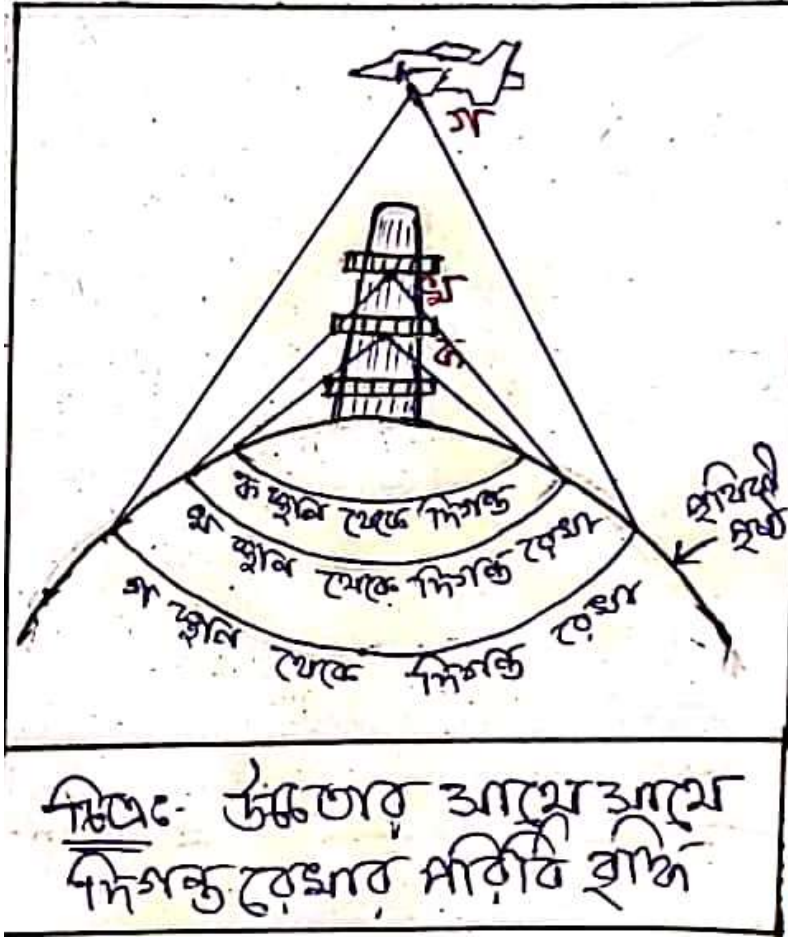 গ
খ
ক
ক স্থান থেকে দিগন্ত
খ স্থান থেকে দিগন্ত রেখা
গ স্থান থেকে দিগন্ত রেখা
পৃথিবী
পৃষ্ঠ
চিত্রঃ- উচ্চতার সাথে সাথে
দিগন্ত রেখার পরিধি বৃদ্ধি